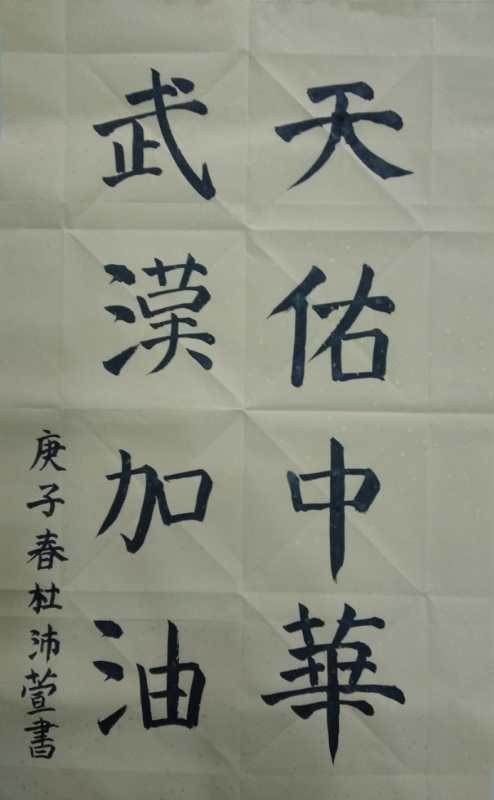 天佑中華
武漢加油
庚子春杜沛萱書